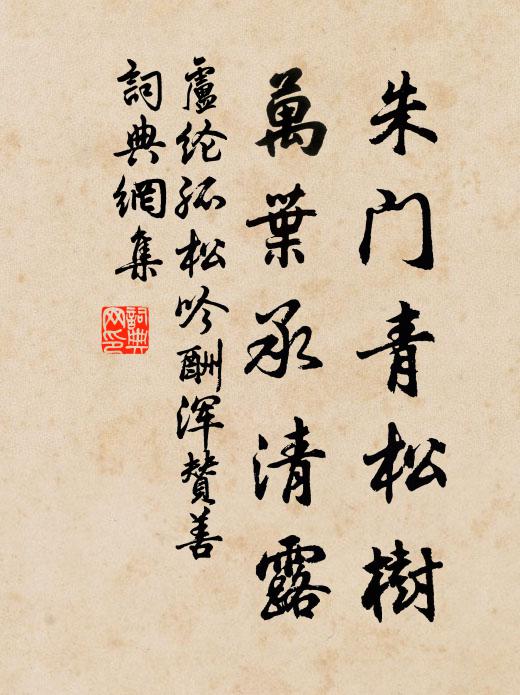 朱门青松樹
萬葉承清露
盧纶孤松吟酬浑贊善
詞典網集
詞典网印